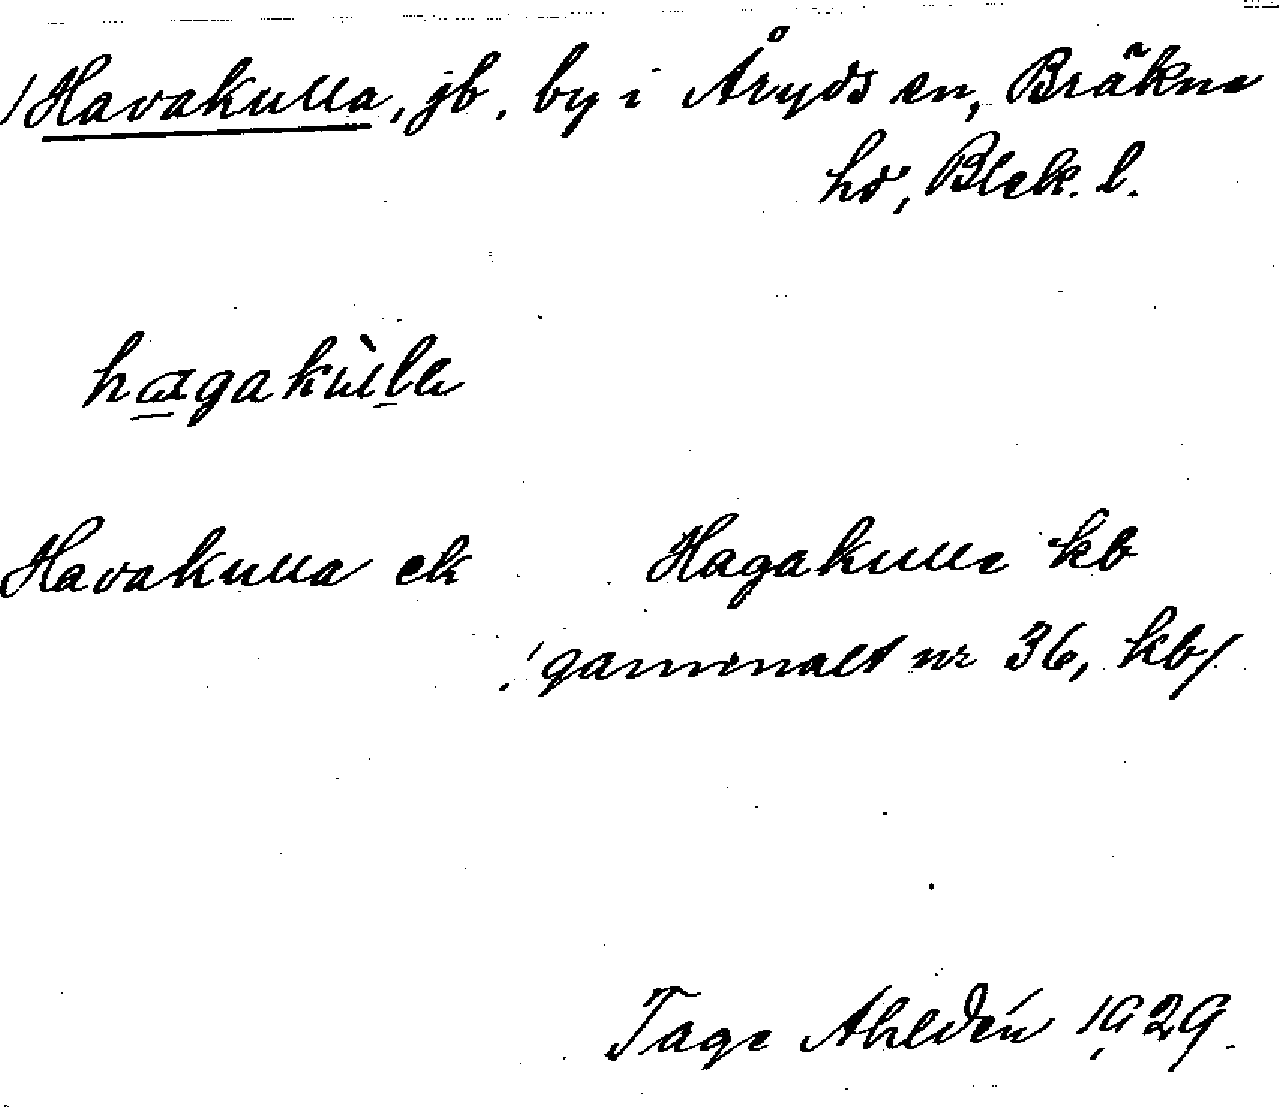 /Havakulla, jb. by i Åryds sn, Bräkne
hd, Blek. l.
hagakùlla
Havakulla ek Hagakulle kb
/gammalt nr 36, kb/
Tage Ahldén 1929.